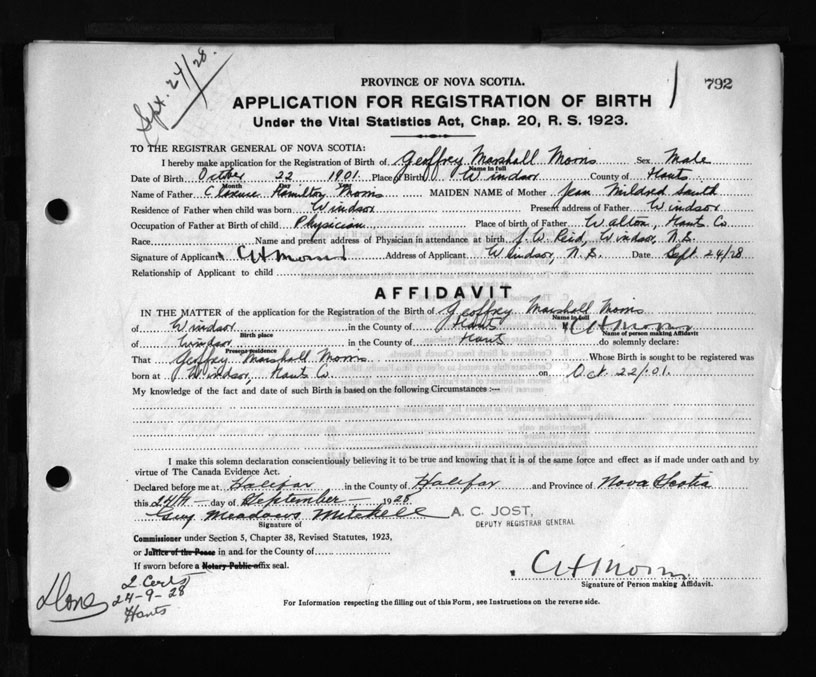 Sept. 24/28.
792
PROVINCE OF NOVA SCOTIA.
APPLICATION FOR REGISTRATION OF BIRTH
Under the Vital Statistics Act, Chap. 20, R. S. 1923.
TO THE REGISTRAR GENERAL OF NOVA SCOTIA:
I hereby make application for the Registration of Birth of Geoffrey Marshall Morris Sex Male
Name in full
Date of Birth October 22 1901. Place of Birth Windsor County of Hants
Month Day
Name of Father Clarence Hamilton Morris MAIDEN NAME of Mother Jean Mildred Smith
Residence of Father when child was born Windsor Present address of Father Windsor
Occupation of Father at Birth of child Physician Place of birth of Father Walton, Hants Co
Race Name and present address of Physician in attendance at birth J. W. Reid, Windsor, N.S.
Signature of Applicant CHMorris Address of Applicant Windsor, N.S. Date Sept. 24/28
Relationship of Applicant to child
AFFIDAVIT
IN THE MATTER of the application for the Registration of the Birth of Geoffrey Marshall Morris
Name in full
of Windsor in the County of Hants CHMorris
Birth place Name of person making Affidavit
of Windsor in the County of Hants do solemnly declare:
Present residence
That Geoffrey Marshall Morris Whose Birth is sought to be registered was
born at Windsor, Hants Co. on Oct. 22/.01.
My knowledge of the fact and date of such Birth is based on the following Circumstances :—
I make this solemn declaration conscientiously believing it to be true and knowing that it is of the same force and effect as if made under oath and by
virtue of The Canada Evidence Act.
Declared before me at Halifax in the County of Halifax and Province of Nova Scotia
this 24th day of September 1928
Guy Meadows Mitchell A. C. JOST,
Signature of DEPUTY REGISTRAR GENERAL
Commissioner under Section 5, Chapter 38, Revised Statutes, 1923,
or Justice of the Peace in and for the County of
If sworn before a Notary Public affix seal.
CHMorris
Signature of Person making Affidavit.
Done
2 Certs
24-9-28
Hants
For Information respecting the filling out of this Form, see Instructions on the reverse side.